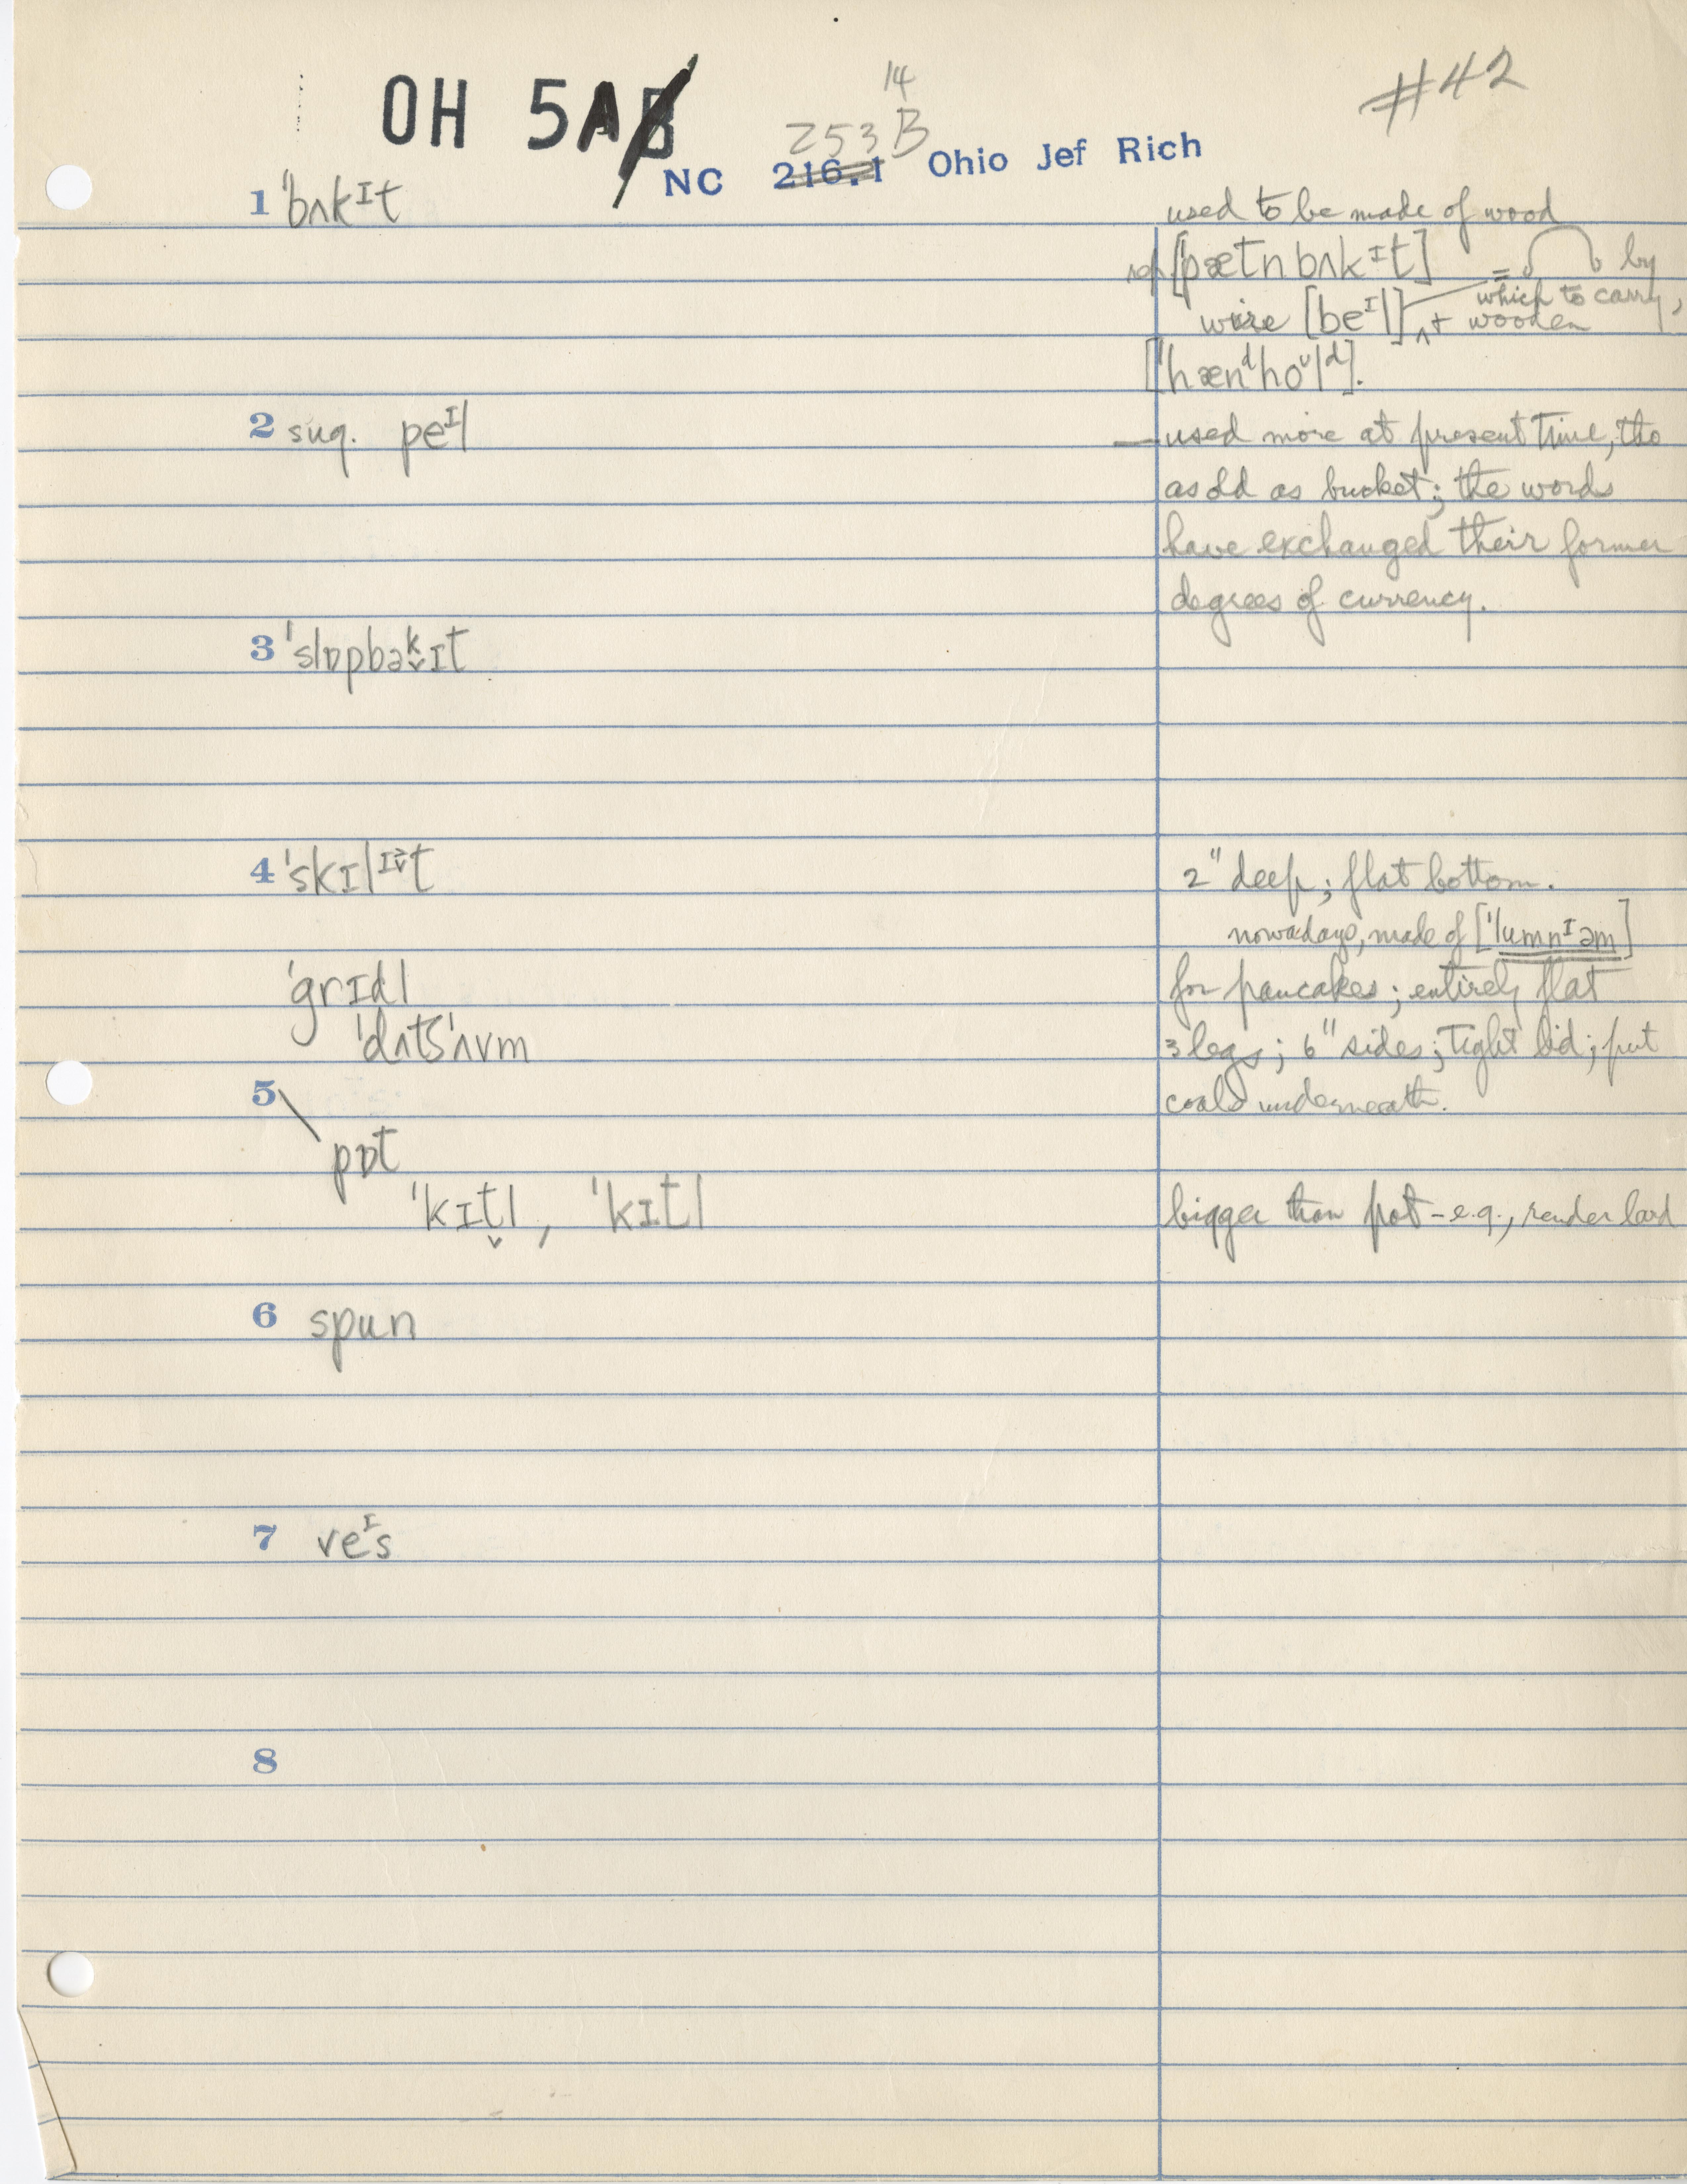 14
#42
OH 5A
253 B
NC 216.1 Ohio Jef Rich
1 ˈbʌkᴵt used to be made of wood
[ˈpætn bʌkᴵt] = by
which to carry,
wire [beᴵl] + wooden
[ˈhænᵈhoᶷlᵈ].
2 sug. peᴵl — used more at present time, tho
as old as bucket; the words
have exchanged their former
degrees of currency.
3 ˈslɒpbək̬ɪt
4 ˈskɪlᴵt 2" deep; flat bottom.
nowadays, made of [ˈlumnᴵəm]
ˈgrɪdl for pancakes; entirely flat
ˈdʌtʃˈʌvm 3 legs; 6" sides; tight lid; put
5 coals underneath.
pɒt
ˈkɪt̬l, ˈkɪtl bigger than pot – e.g., render lard
6 spun
7 veᴵs
8